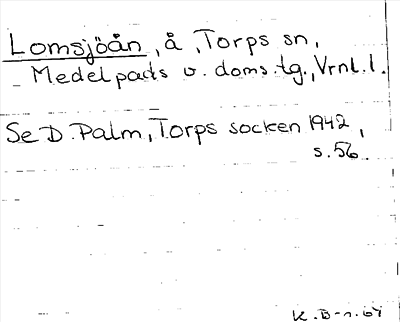 Lomsjöån, å, Torps sn,
Medelpads v. doms.tg., Vrnl.l.
Se D. Palm, Torps socken 1942,
s. 56.
K. B-n. 67